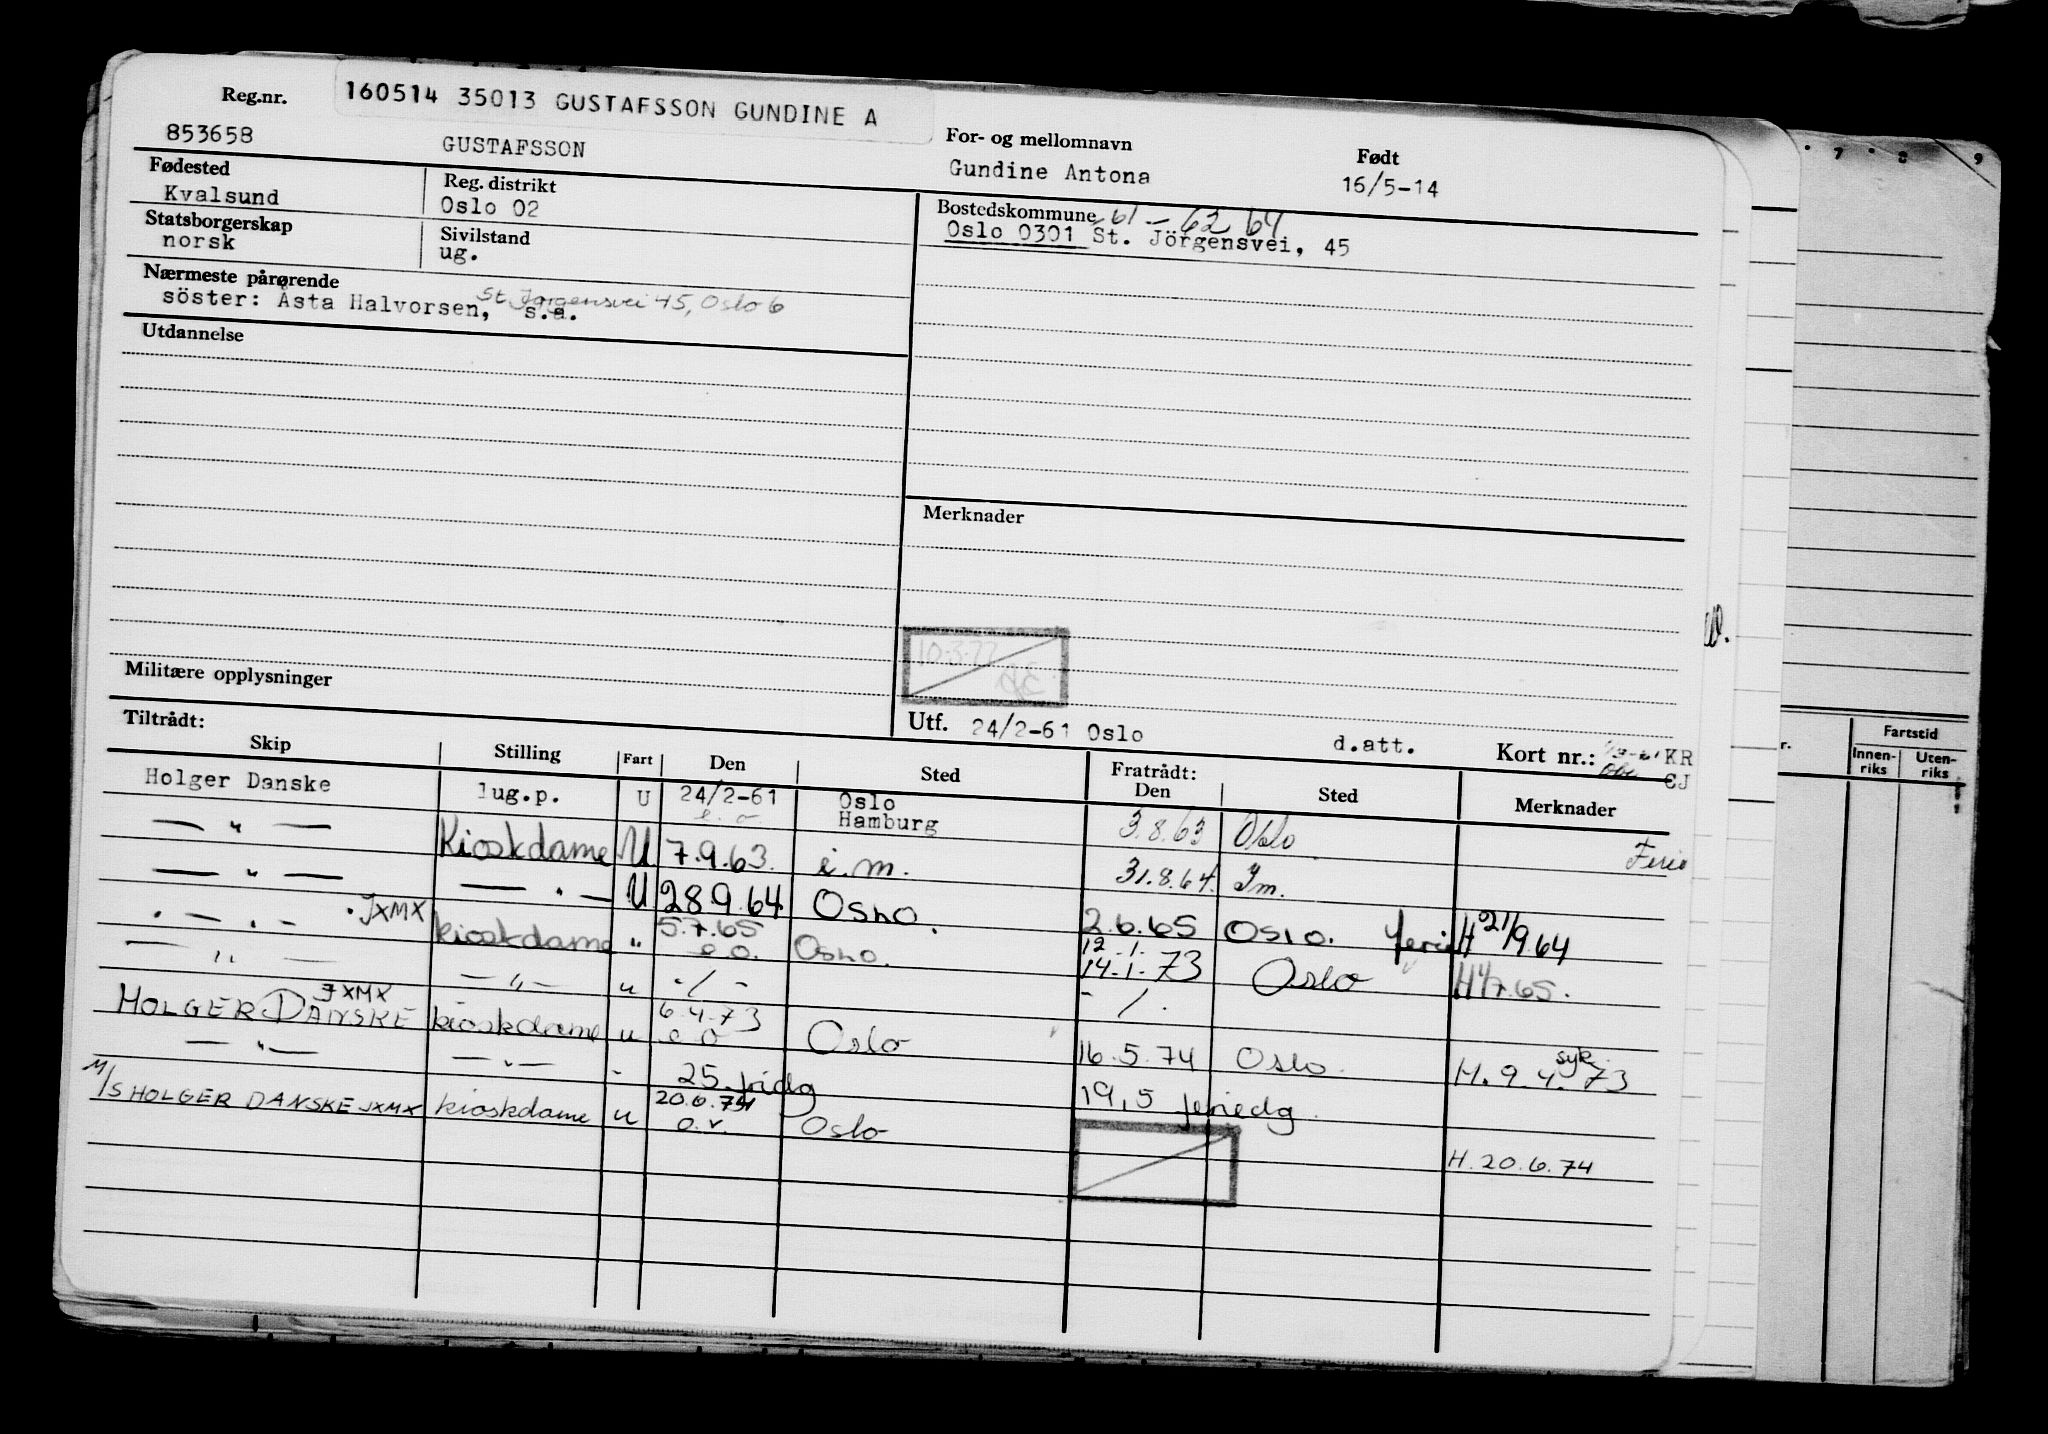 Reg.nr. 160514 35013 GUSTAFSSON GUNDINE A
853658 GUSTAFSSON
For- og mellomnavn
Gundine Antona
Født
16/5-14
Fødested
Kvalsund
Reg. distrikt
Oslo 02
Statsborgerskap
norsk
Sivilstand
ug.
Bostedskommune 61 - 62 64
Oslo 0301 St. Jörgensvei, 45
Nærmeste pårørende
söster: Åsta Halvorsen, s.a.
St. Jørgensvei 45, Oslo 6
Utdannelse
Merknader
10.3.77
Militære opplysninger
Utf. 24/2-61 Oslo d.att. Kort nr.: KR
CJ
Tiltrådt:
Skip Stilling Fart Den Sted Fratrådt: Den Sted Merknader
Holger Danske lug.p. U 24/2-61 Oslo
Hamburg 3.8.63 Oslo Ferie
— " — Kioskdame U 7.9.63. i.m. 31.8.64. Im.
— " — — " — U 28.9.64 Oslo. 2.6.65 Oslo. ferie H 21/9.64
. — . . — . JXMX kioskdame " 5.7.65 e.o. Oslo. 12.1. 14.1.73 Oslo H 1/7.65.
— " — — " — u -/- -/-
HOLGER DANSKE JXMX kioskdame u 6.4.73 e.o Oslo 16.5.74 Oslo. syk. H. 9.4.73
— " — — " — - 25 fridg 19,5 feriedg.
M/S HOLGER DANSKE JXMX kioskdame u 20.6.74 o.v. Oslo H. 20.6.74
7 8 9
Fartstid
Innen-
riks
Uten-
riks